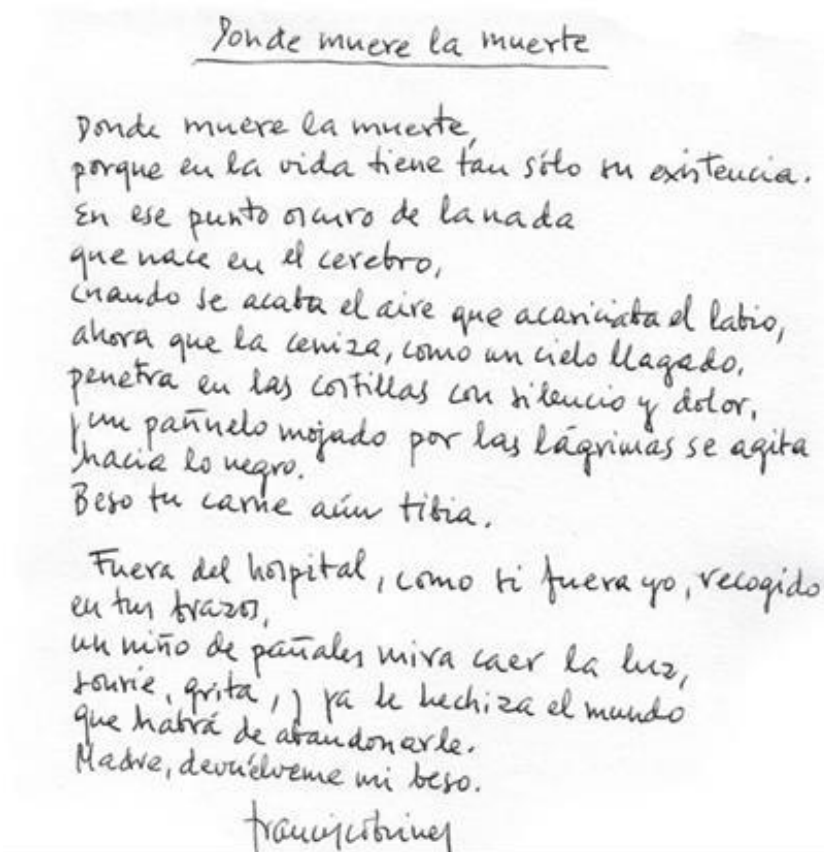 Donde muere la muerte
Donde muere la muerte,
porque en la vida tiene tan sólo su existencia.
En ese punto oscuro de la nada
que nace en el cerebro,
cuando se acaba el aire que acariciaba el labio,
ahora que la ceniza, como un cielo llagado,
penetra en las costillas con silencio y dolor,
y un pañuelo mojado por las lágrimas se agita
hacia lo negro.
Beso tu carne aún tibia.
Fuera del hospital, como si fuera yo, recogido
en tus brazos,
un niño de pañales mira caer la luz,
sonríe, grita, y ya le hechiza el mundo
que habrá de abandonarle.
Madre, devuélveme mi beso.
Francisco Brines